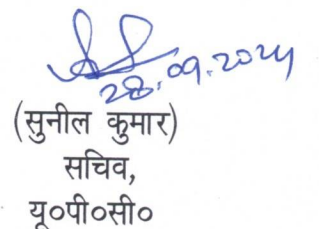 28.09.2024
(सुनील कुमार)
सचिव,
यू०पी०सी०